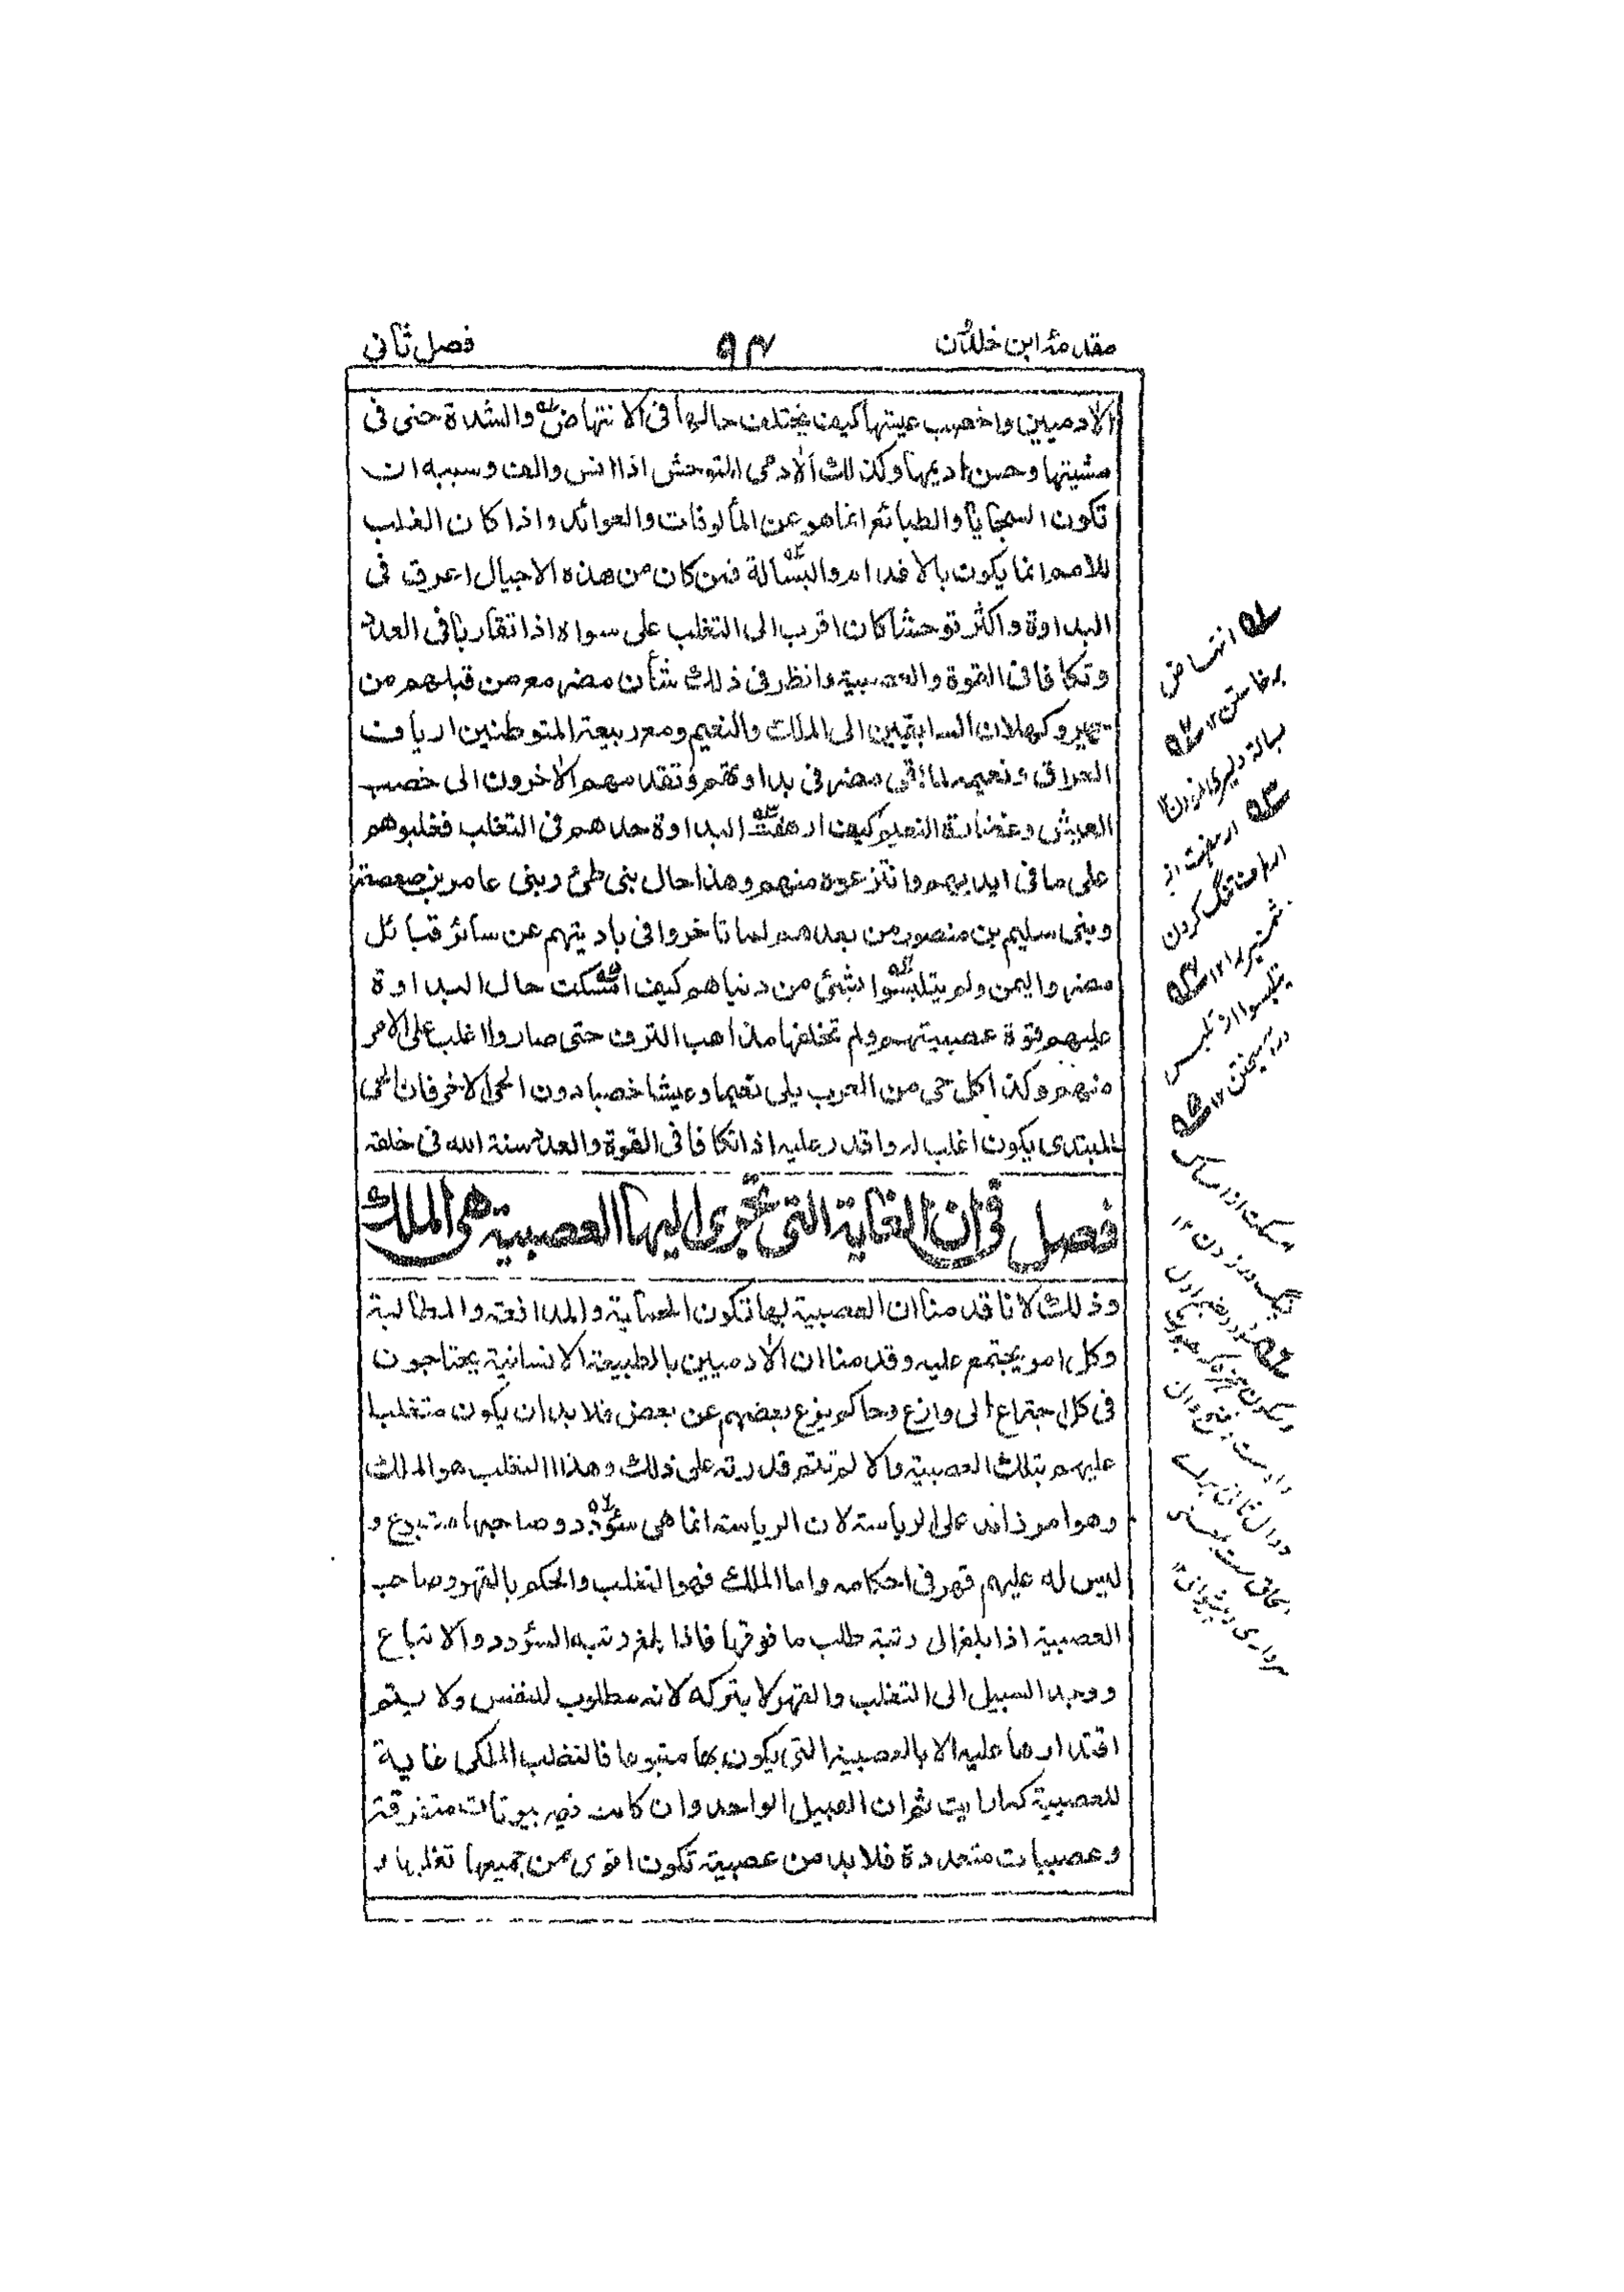 مقدمۂ ابن خلدون
۹۴
فصل ثانی
الآدميين واخصب عيشها كيف يختلف حالها فى الانتهاض والشدة حتى فى
مشيتها وحسن اديمها وكذلك الآدمى المتوحش اذا انس والف وسببه ان
تكون السجايا والطبائع انما هو عن المألوفات والعوائد واذا كان الغلب
للامم انما يكون بالاقدام والبسالة فمن كان من هذه الاجيال اعرق فى
البداوة واكثر توحشا كان اقرب الى التغلب على سواه اذا تقاربا فى العدد
وتكافا فى القوة والعصبية وانظر فى ذلك شأن مضر مع من قبلهم من
حمير وكهلان السابقين الى الملك والنعيم ومع ربيعة المتوطنين ارياف
العراق ونعيمه لما بقى مضر فى بداوتهم وتقدمهم الآخرون الى خصب
العيش وغضارة النعيم كيف ارهفت البداوة حدهم فى التغلب فغلبوهم
على ما فى ايديهم وانتزعوه منهم وهذا حال بنى طئ وبنى عامر بن صعصعة
وبنى سليم بن منصور من بعدهم لما تاخروا فى باديتهم عن سائر قبائل
مضر واليمن ولم يتلبسوا بشئ من دنياهم كيف امسكت حال البداوة
عليهم قوة عصبيتهم ولم تخلفها مذاهب الترف حتى صاروا اغلب على الامر
منهم وكذا كل حى من العرب يلى نعيما وعيشا خصبا دون الحى الاخر فان الحى
المبتدى يكون اغلب له واقدر عليه اذا تكافا فى القوة والعدد سنة الله فى خلقه
فصل فى ان الغاية التى تجرى اليها العصبية هى الملك
وذلك لانا قدمنا ان العصبية بها تكون الحماية والمدافعة والمطالبة
وكل امر يجتمع عليه وقدمنا ان الآدميين بالطبيعة الانسانية يحتاجون
فى كل اجتماع الى وازع وحاكم يزع بعضهم عن بعض فلا بد ان يكون متغلبا
عليهم بتلك العصبية والا لم تتم قدرته على ذلك وهذا التغلب هو الملك
وهو امر زائد على الرياسة لان الرياسة انما هى سؤدد وصاحبها متبوع و
ليس له عليهم قهر فى احكامه واما الملك فهو التغلب والحكم بالقهر وصاحب
العصبية اذا بلغ الى رتبة طلب ما فوقها فاذا بلغ رتبه السؤدد والاتباع
ووجد السبيل الى التغلب والقهر لا يتركه لانه مطلوب للنفس ولا يتم
اقتدارها عليه الا بالعصبية التى يكون بها متبوعا فالتغلب الملكى غاية
للعصبية كما رايت ثم ان القبيل الواحد وان كانت فيه بيوتات متفرقة
وعصبيات متعددة فلا بد من عصبية تكون اقوى من جميعها تغلبها و
انتهاض
برخاستن ۱۲
بسالة دليرى
ارهفت از
ارهاف تنگ كردن
شمشير را ۱۲
يتلبسوا از تلبس
درآميختن ۱۲